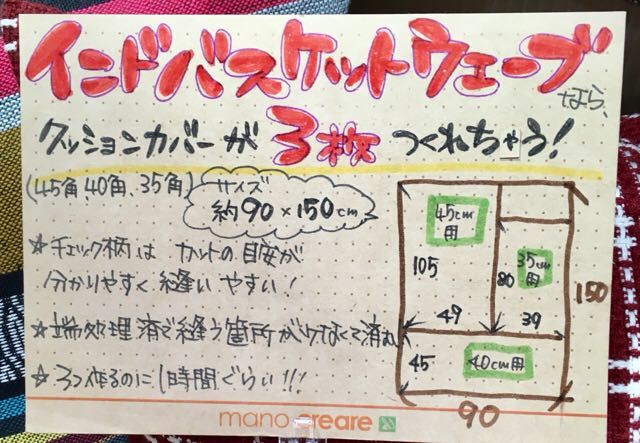 インドバスケットウェーブ
なら、
クッションカバーが3枚つくれちゃう!
(45角、40角、35角)
サイズ
約90×150cm
★チェック柄はカットの目安が
分かりやすく縫いやすい!
★端処理済で縫う箇所が少なくて済む
★3つ作るのに1時間ぐらい!!!
45cm
用
105
49
35cm
用
80
39
150
45
40cm用
90
mano creare